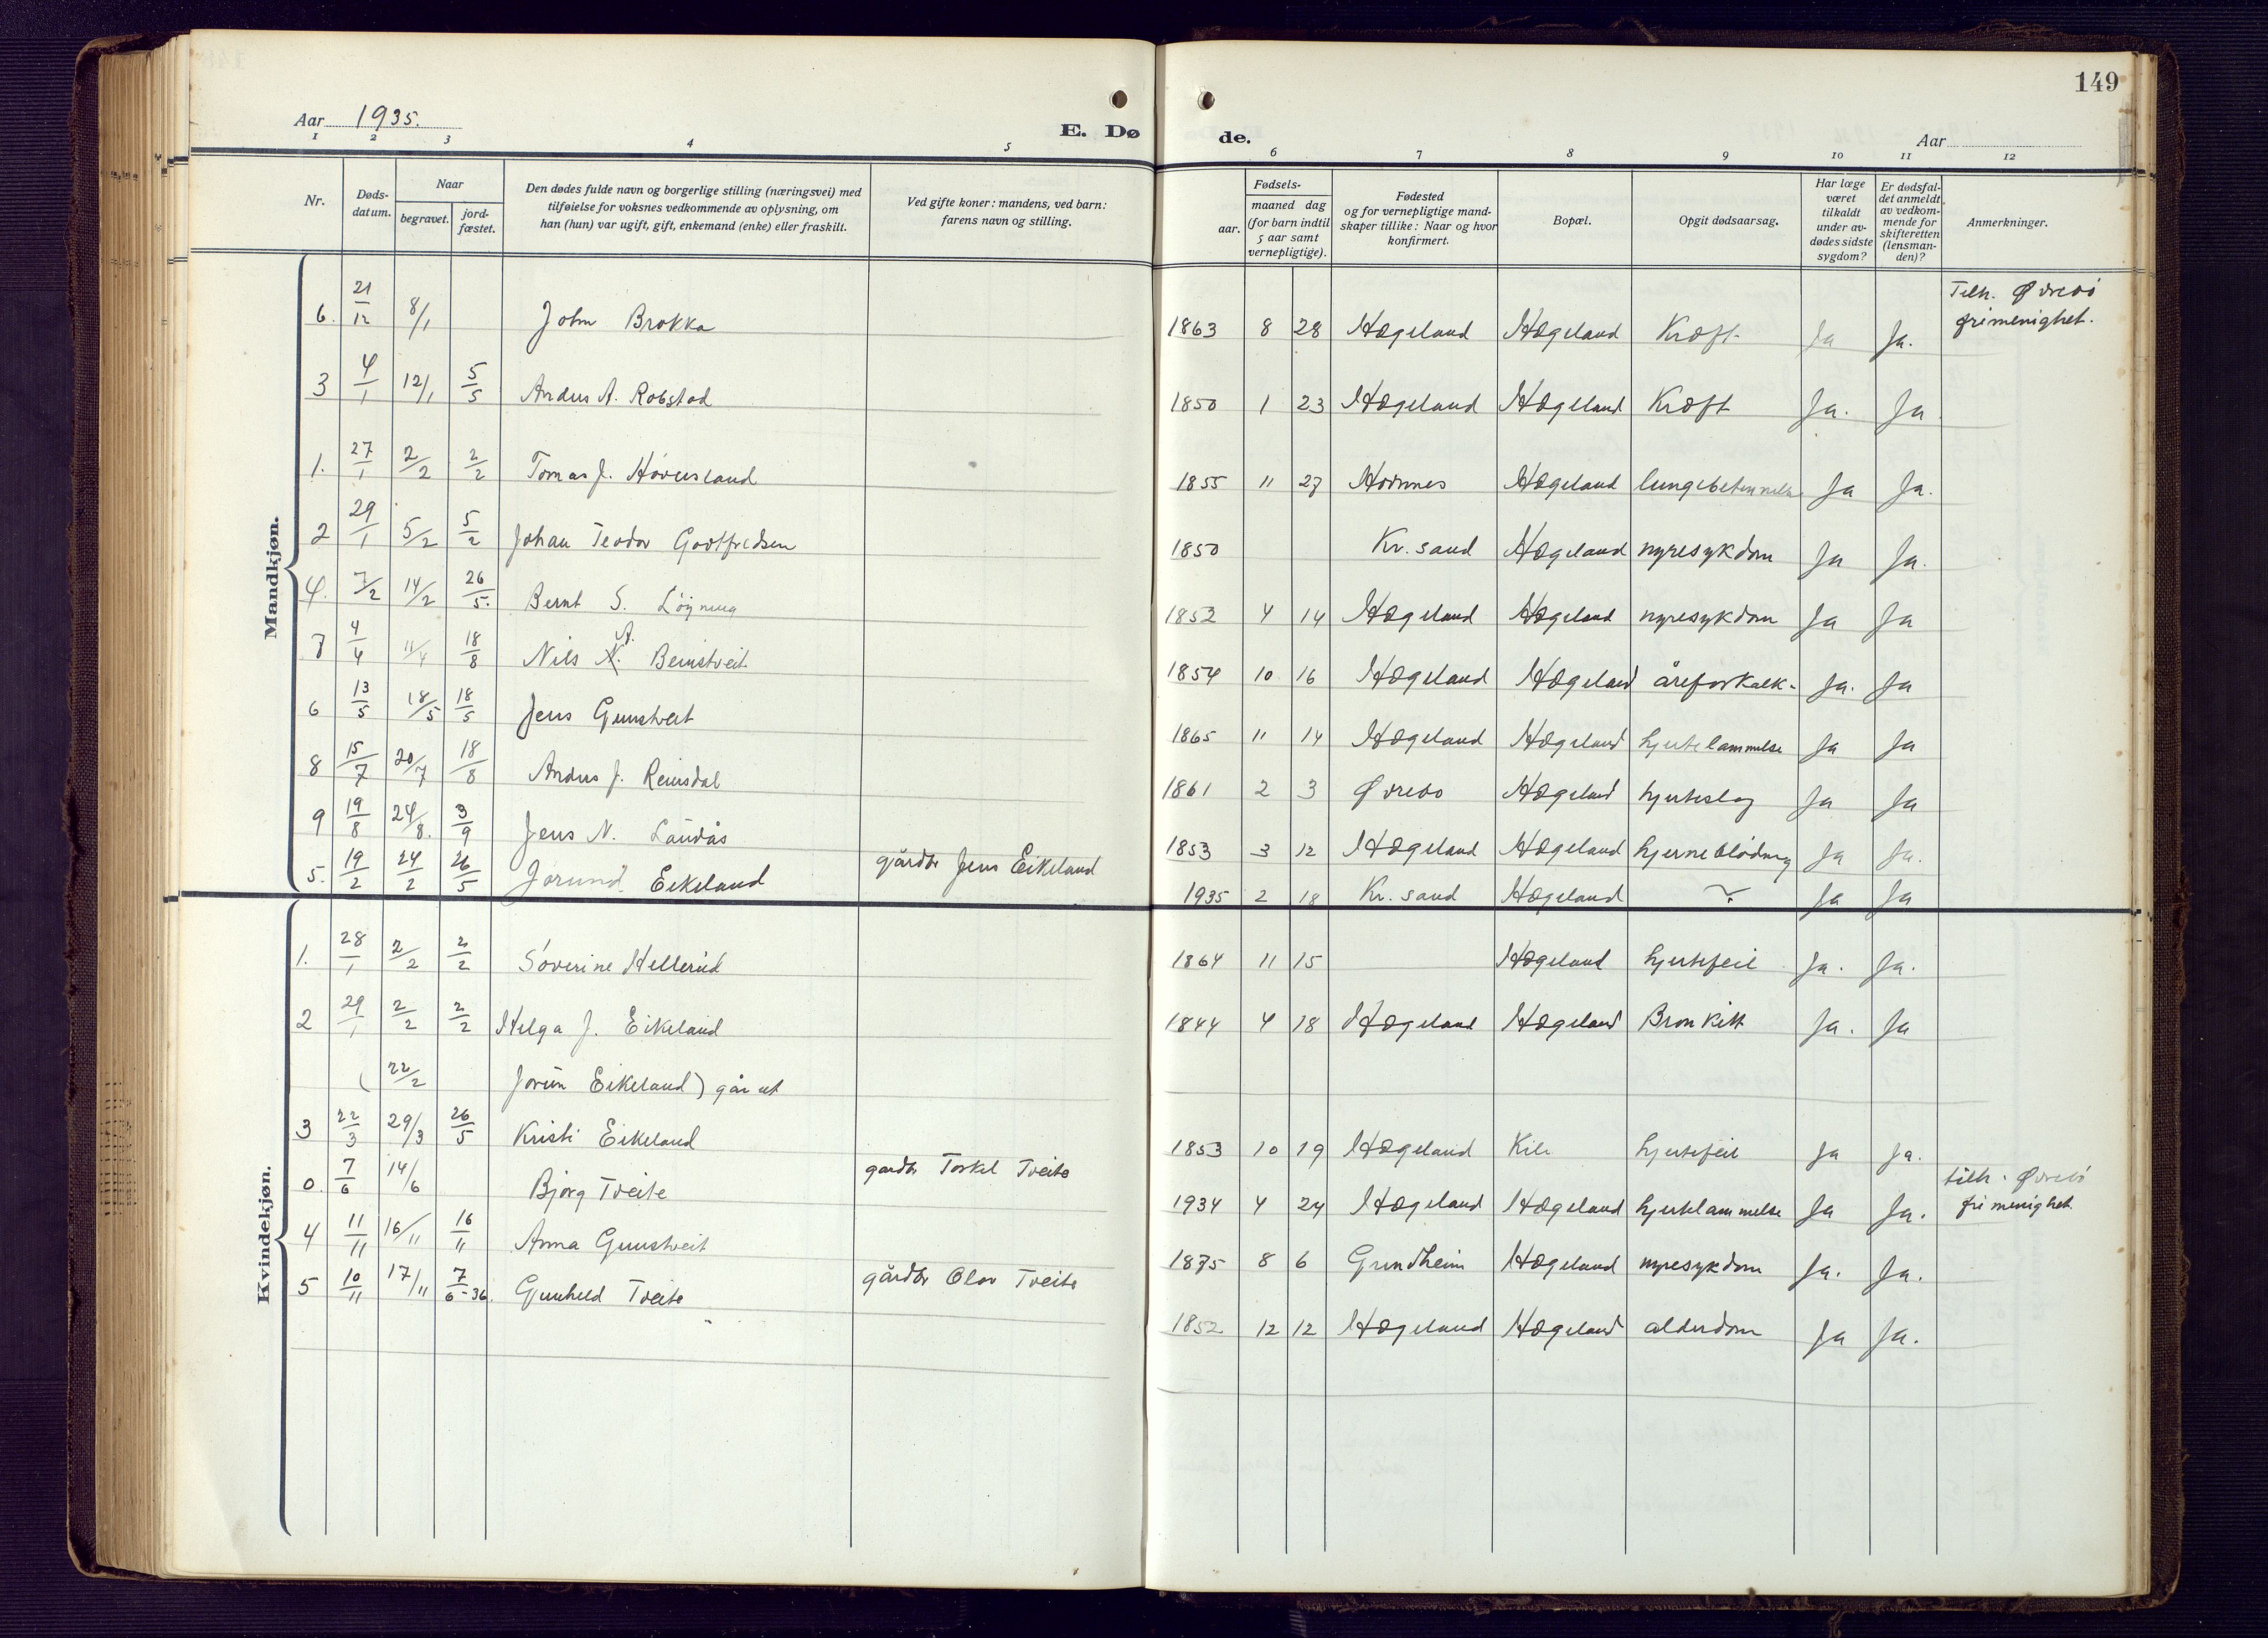 149
Aar 1935.
E. Dø de.
Aar
1 2 3 4 5 6 7 8 9 10 11 12
Nr.
Døds-
datum.
Naar
begravet.
jord-
fæstet.
Den dødes fulde navn og borgerlige stilling (næringsvei) med
tilføielse for voksnes vedkommende av oplysning, om
han (hun) var ugift, gift, enkemand (enke) eller fraskilt.
Ved gifte koner: mandens, ved barn:
farens navn og stilling.
Fødsels-
aar.
maaned dag
(for barn indtil
5 aar samt
vernepligtige).
Fødested
og for vernepligtige mand-
skaper tillike: Naar og hvor
konfirmert.
Bopæl.
Opgit dødsaarsag.
Har læge
været
tilkaldt
under av-
dødes sidste
sygdom?
Er dødsfal-
det anmeldt
av vedkom-
mende for
skifteretten
(lensman-
den)?
Anmerkninger.
Mandkjøn.
6. 21/12 8/1 John Brokka 1863 8 28 Hægeland Hægeland Kræft Ja Ja. Tilh. Øvrebö
frimenighet.
3 4/1 12/1 5/5 Andus A. Robstad 1850 1 23 Hægeland Hægeland Kræft Ja. Ja
1. 27/1 2/2 2/2 Tomas J. 1855 11 27 Hornnes Hægeland lungebetennelse Ja Ja.
2 29/1 5/2 5/2 Johan Teodor Godtfredsen 1850 Kr. sand Hægeland nyresykdom Ja Ja.
4. 7/2 14/2 26/5. Bernt S. Löyning 1852 4 14 Hægeland Hægeland nyresykdom Ja Ja
7 4/4 11/4 18/8 Nils A. Beinstveit 1854 10 16 Hægeland Hægeland åreforkalk- Ja. Ja
6 13/5 18/5 18/5 Jens Gunstveit 1865 11 14 Hægeland Hægeland hjertelammelse Ja Ja
8 15/7 20/7 18/8 Andus J. Reinsdal 1861 2 3 Øvrebo Hægeland hjerteslag Ja Ja
9 19/8 24/8. 3/9 Jens N. Landås 1853 3 12 Hægeland Hægeland hjerneblödning Ja Ja.
5. 19/2 24/2 26/5 Jorund Eikeland gårdbr Jens Eikeland 1935 2 18 Kr. sand Hægeland ? Ja Ja
Kvindekjøn.
1. 28/1 2/2 2/2 Söverine Hellerud 1864 11 15 Hægeland hjertefeil Ja. Ja.
2 29/1 2/2 2/2 Helga J. Eikeland 1844 4 18 Hægeland Hægeland Bronkitt Ja. Ja
( 22/2 Jorun Eikeland) går ut
3 22/3 29/3 26/5 Kristi Eikeland 1853 10 19 Hægeland Kile hjertefeil Ja Ja.
0. 7/6 14/6 Bjørg Tveite gardbr Torkel Tveite 1934 4 24 Hægeland Hægeland hjertelammelse Ja Ja. tilh. Øvrebö
frimenighet.
4 11/11 16/11 16/11 Anna Gunstveit 1875 8 6 Grindheim Hægeland nyresykdom Ja. Ja.
5 10/11 17/11 7/6-36. Gunhild Tveite gårdbr Olav Tveite 1852 12 12 Hægeland Hægeland alderdom Ja Ja.